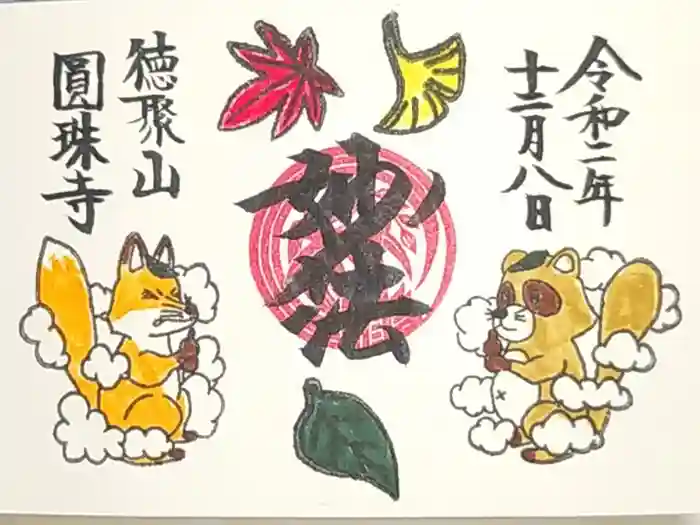 令和二年
十二月八日
妙法
徳聚山
圓珠寺